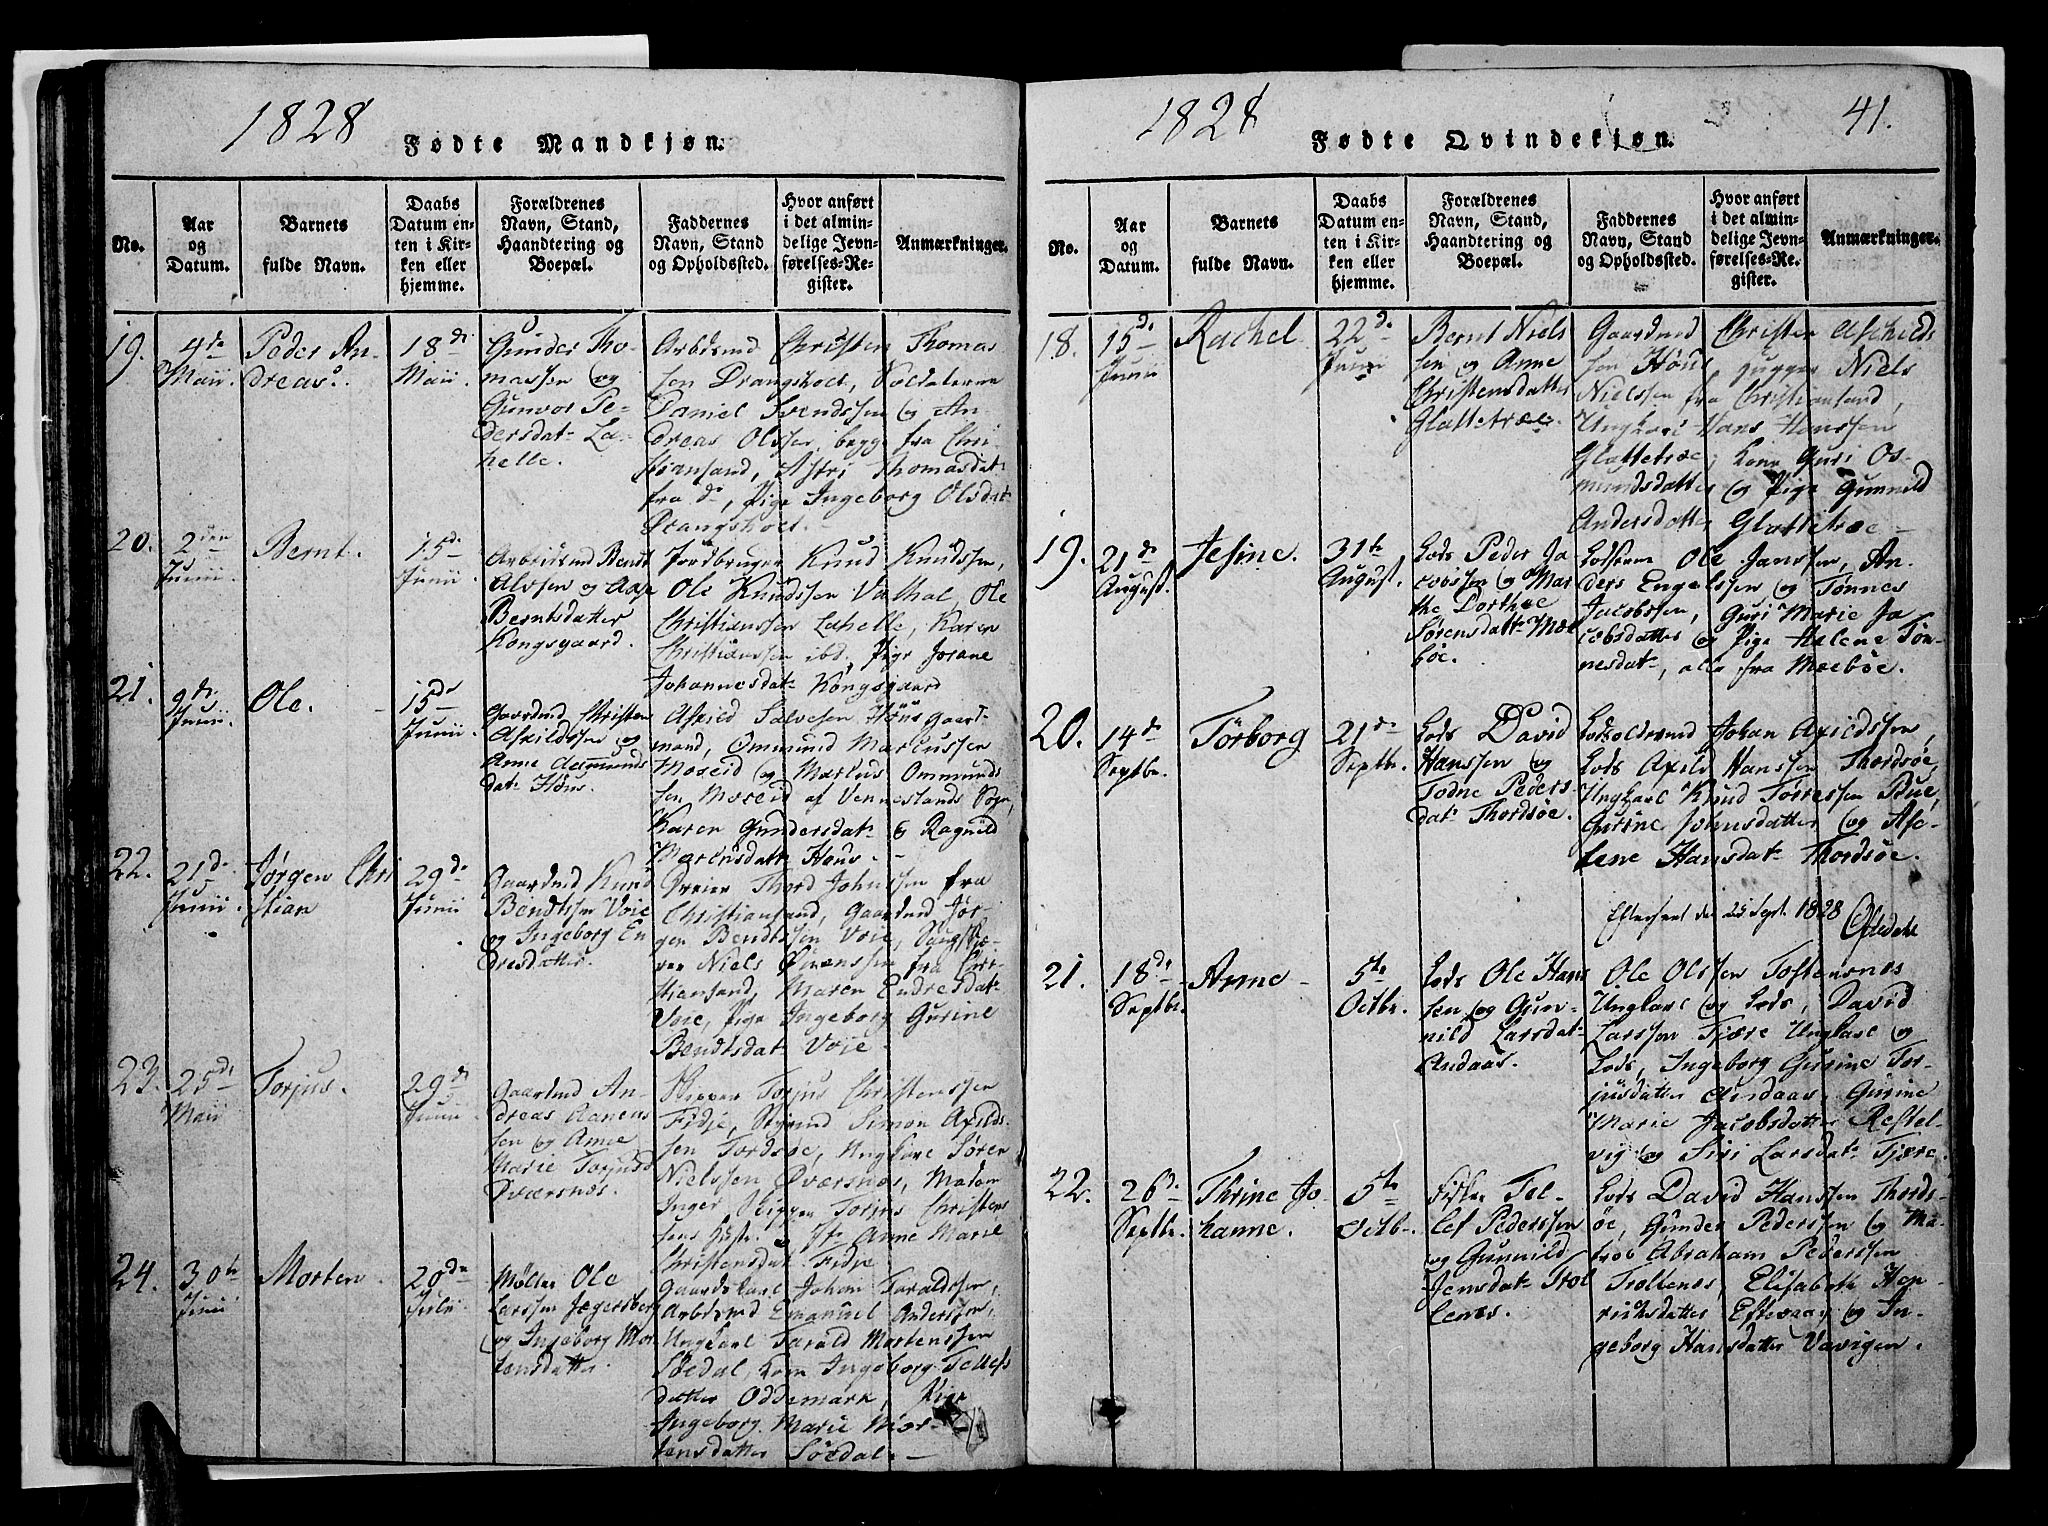 1828
Fødte Mandkjøn.
No.
Aar
og
Datum.
Barnets
fulde Navn.
Daabs
Datum en-
ten i Kir-
ken eller
hjemme.
Forældrenes
Navn, Stand,
Haandtering og
Boepæl.
Faddernes
Navn, Stand
og Opholdssted.
Hvor anført
i det almin-
delige Jevn-
førelses-Re-
gister.
Anmærkninger.
19.
4de
Maii.
Peder An-
dreas.
18de
Maii
Gunder Tho-
massen og
Gunvor Pe-
dersdatr La-
helle.
Arbdsmd Christen Thomas
sen Drangsholt, Soldaterne
Daniel Svendssen og An-
dreas Olssen, begge fra Chri-
stiansand, Astri Thomasdatr
fra do, Pige Ingeborg Olsdatr
Drangsholt.
20.
2den
Junii.
Bernt.
15de
Junii
Arbeidsmd Bendt
Alfssen og Aase
Berntsdatter
Kongsgaard.
Jordbruger Knud Knudssen,
Ole Knudssen Vathal, Ole
Christianssen Lahelle, Karen
Christianssen ibd, Pige Josane
Johannesdatr Kongsgaard
21.
9de
Junii.
Ole.
15de
Junii.
Gaardmd Christen
Askildssen og
Anne Aasmunds
datr Höus.
Askild Salvesen Höus gaard-
mand, Ommund Markussen
Moseid og Markus Ommunds
sen Moseid af Venneslands Sogn,
Karen Gundersdatr og Ragnild
Markusdatr Höus. -
22.
21de
Junii.
Jørgen Chri
stian
29de
Junii.
Gaardmd Knud
Bendtssen Voie
og Ingeborg En
dresdatter.
Dreier Thord Johnssen fra
Christiansand, Gaardmd Jør-
gen Bendtssen Voie,
Niels fra Chri-
stiansand, Maren Endresdatr
Voie, Pige Ingeborg Gurine
Bendtsdatr Voie.
23.
25de
Maii
Torjus.
29de
Junii
Gaardmd An-
dreas Aanens
sen og Anne
Marie Torjusd
Dværsnæs.
Skipper Torjus Christenssen
Fidje, Styrmd Simon Axilds-
sen Tordsøe, Ungkarl Søren
Nielssen Dværsnæs, Madam
Inger Skipper Torjus Christens
sens Anne Marie
Christensdatr Fidje.
24.
30te
Junii
Morten
20de
Julii
Møller Ole
Larssen Jegersberg
og Ingeborg Mor-
tensdatter.
Gaardskarl Johan Taraldssen,
Arbdsmd Emanuel Anderssen,
Ungkarl Tarald Mortenssen
Sødal, Kone Ingeborg Tellefs
datter Oddemark, Pige
Ingeborg Marie Mor-
tensdatter Sødal. -
1828
Fødte Qvindekjøn.
41.
No.
Aar
og
Datum.
Barnets
fulde Navn.
Daabs
Datum en-
ten i Kir-
ken eller
hjemme.
Forældrenes
Navn, Stand,
Haandtering og
Boepæl.
Faddernes
Navn, Stand
og Opholdssted.
Hvor anført
i det almin-
delige Jevn-
førelses-Re-
gister.
Anmærkninger.
18.
15de
Junii
Rachel
22de
Junii
Bernt Niels
sen og Anne
Christensdatter
Glattetræe.
Gaardmd Christen Aschilds
sen Höus, Niels
Nielssen fra Christiansand,
Ungkarl Hans Hanssen
Glattetræe, Kone Guri Os-
mundsdatter og Pige Gunnild
Andersdatter Glattetræe -
19.
21de
August.
Jesine.
31te
August.
Lods Peder Ja-
cobssen og Mar
the Dorthæe
Sørensdatr Mæe
bøe.
Lodserne Ole Janssen, An-
ders Engelssen og Tønnes
Jacobssen, Guri Marie Ja
cobsdatter og Pige Helene Tøn-
nesdatr, alle fra Mæebøe.
20.
14de
Septbr.
Törborg
21de
Septbr.
Lods David
Hanssen og
Todne Peders
datr Thordsøe.
Lodsoldermd Johan Axildssen,
Lods Axild Hanssen Thordsøe,
Ungkarl Knud Torressen Bue,
Gurine Johnsdatter og Ase-
lene Hansdatr Thordsøe.
Efterseet den 25 Sept. 1828
Oftedahl
21.
18de
Septbr.
Anne
5te
Octbr.
Lods Ole Hans
sen og Gun-
nild Larsdatr
Andaas.
Ole Olssen Toftenæs
Ungkarl og Lods, David
Larssen Tjære Ungkarl og
Lods, Ingeborg Gurine Tor-
jusdatter Andaas, Gurine
Marie Jacobsdatter Kestel-
vig og Siri Larsdatr Tjære.
22.
26de
Septbr.
Thrine Jo-
hanne.
5te
Octbr
Fisker Tel-
lef Pederssen
og Gunnild
Jensdatr Trol
lenæs.
Lods David Hanssen Thords-
øe, Gunder Pederssen og Ma-
tros Abraham Pederssen
Trollenæs, Elisabeth Hen-
richsdatter Eftevaag og In-
geborg Hansdatter Vavigen.